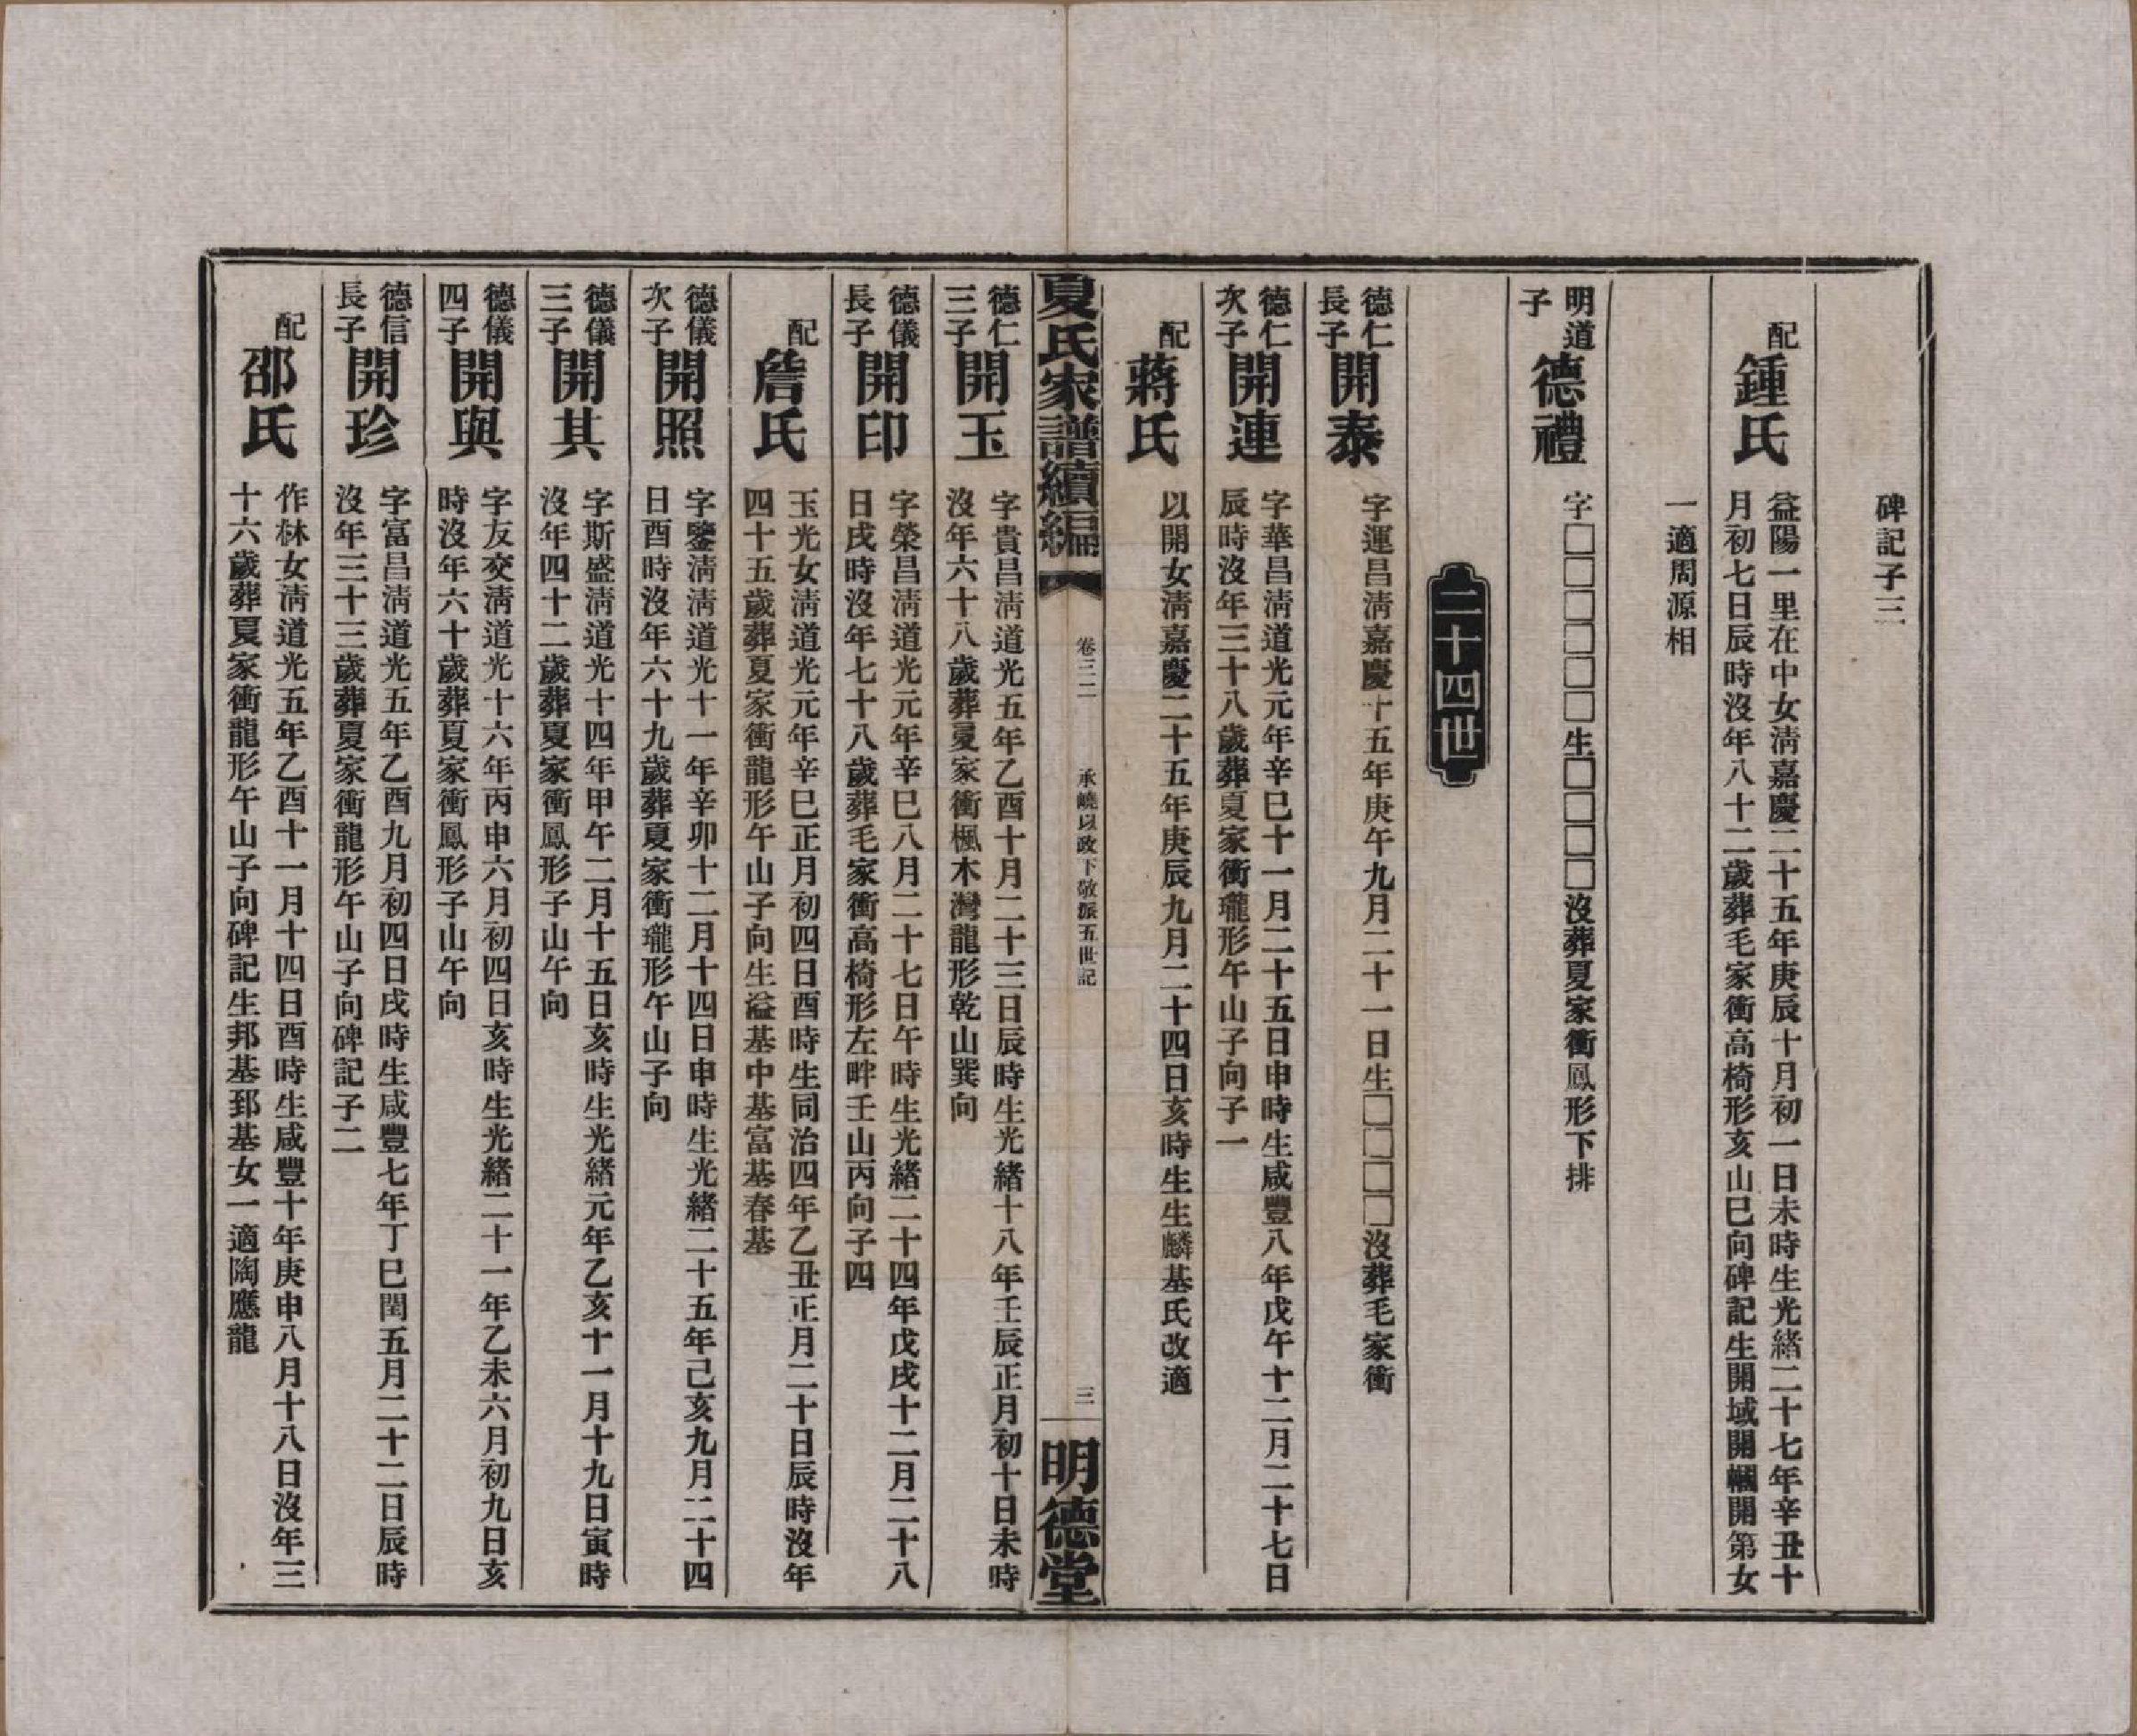 碑記子三
配
鍾氏
益陽一里在中女淸嘉慶二十五年庚辰十月初一日未時生光緒二十七年辛丑十
月初七日辰時沒年八十二歲葬毛家衝高椅形亥山巳向碑記生開域開幗開第女
一適周源相
明道
子
德禮
字□□□□□□生□□□□沒葬夏家衝鳳形下排
二十四世
德仁
長子
開泰
字運昌淸嘉慶十五年庚午九月二十一日生□□□□沒葬毛家衝
德仁
次子
開連
字華昌淸道光元年辛巳十一月二十五日申時生咸豐八年戊午十二月二十七日
辰時沒年三十八歲葬夏家衝瓏形午山子向子一
配
蔣氏
以開女淸嘉慶二十五年庚辰九月二十四日亥時生生麟基氏改適
夏氏家譜續編
卷三二
承曉以政下敬派五世記
三
明德堂
德仁
三子
開玉
字貴昌淸道光五年乙酉十月二十三日辰時生光緒十八年壬辰正月初十日未時
沒年六十八歲葬夏家衝楓木灣龍形乾山巽向
德儀
長子
開印
字榮昌淸道光元年辛巳八月二十七日午時生光緒二十四年戊戌十二月二十八
日戌時沒年七十八歲葬毛家衝高椅形左畔壬山丙向子四
配
詹氏
玉光女淸道光元年辛巳正月初四日酉時生同治四年乙丑正月二十日辰時沒年
四十五歲葬夏家衝龍形午山子向生溢基中基富基春基
德儀
次子
開照
字鑒淸淸道光十一年辛卯十二月十四日申時生光緒二十五年己亥九月二十四
日酉時沒年六十九歲葬夏家衝瓏形午山子向
德儀
三子
開其
字斯盛淸道光十四年甲午二月十五日亥時生光緒元年乙亥十一月十九日寅時
沒年四十二歲葬夏家衝鳳形子山午向
德儀
四子
開與
字友交淸道光十六年丙申六月初四日亥時生光緒二十一年乙未六月初九日亥
時沒年六十歲葬夏家衝鳳形子山午向
德信
長子
開珍
字富昌淸道光五年乙酉九月初四日戌時生咸豐七年丁巳閏五月二十二日辰時
沒年三十三歲葬夏家衝龍形午山子向碑記子二
配
邵氏
作林女淸道光五年乙酉十一月十四日酉時生咸豐十年庚申八月十八日沒年三
十六歲葬夏家衝龍形午山子向碑記生邦基郅基女一適陶應龍